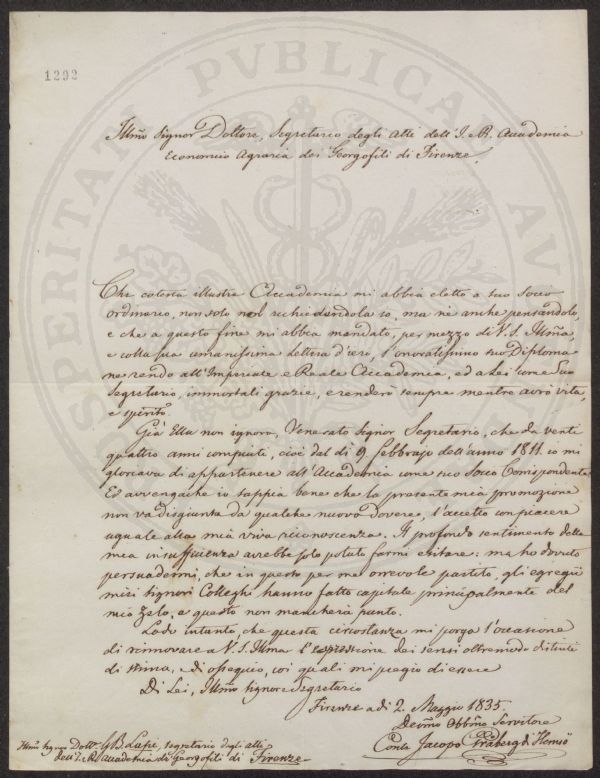 1292
PROSPERITATI PVBLICAE AVGENDAE
Illmõ Signor Dottore, Segretario degli Atti dell'I. e R. Accademia
Economico Agraria dei Georgofili di Firenze.
Che cotesta illustre Accademia mi abbia eletto a suo Socio
ordinario, non solo nol richiedendola io, ma nè anche pensandolo,
e che a questo fine mi abbia mandato, per mezzo di V. S. Illmã,
e colla sua umanissima Lettera d'ieri, l'onoratissimo suo Diploma
ne rendo all'Imperiale e Reale Accademia, ed a Lei come suo
Segretario, immortali grazie, e renderò sempre mentre avrò vita,
e spirito.
Già Ella non ignora, Venerato Signor Segretario, che da venti
quattro anni compiuti, cioè dal dì 9. febbrajo dell'anno 1811. io mi
gloriava di appartenere all'Accademia come suo Socio Corrispondente.
Ed avvengachè io sappia bene che la presente mia promozione
non va disgiunta da qualche nuovo dovere, l'accetto con piacere
uguale alla mia viva riconoscenza. Il profondo sentimento della
mia insufficienza avrebbe solo potuto farmi esitare: ma ho dovuto
persuadermi, che in questo per me orrevole partito, gli egregii
miei Signori Colleghi hanno fatto capitale principalmente del
mio zelo, e questo non mancherà punto.
Lodo intanto, che questa circostanza mi porga l'occasione
di rinnovare a V. S. Illma l'espressione dei sensi oltremodo distinti
di stima, e di ossequio, coi quali mi pregio di essere
Di Lei, Illmõ Signore Segretario
Firenze a dì 2. Maggio 1835.
Devmõ Obbmõ Servitore
Conte Jacopo Gråberg di Hemsö
Illmõ Signor Dottr. G.B. Lapi, Segretario degli atti
dell'I. e R. Accademia di Georgofili di Firenze